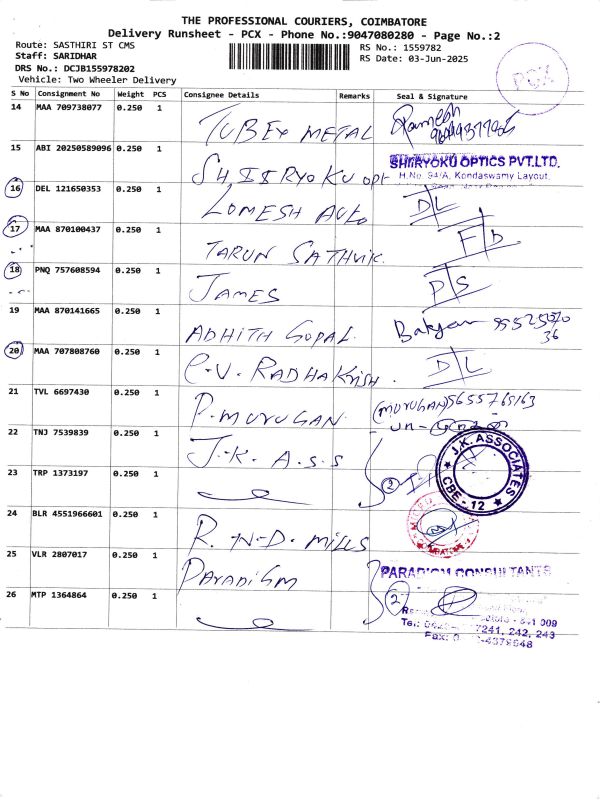 THE PROFESSIONAL COURIERS, COIMBATORE
Delivery Runsheet - PCX - Phone No.:9047080280 - Page No.:2
Route: SASTHIRI ST CMS
Staff: SARIDHAR
DRS No.: DCJB155978202
Vehicle: Two Wheeler Delivery
RS No.: 1559782
RS Date: 03-Jun-2025
PCX
S No Consignment No Weight PCS Consignee Details Remarks Seal & Signature
14 MAA 709738077 0.250 1 TUBEX METAL Ramesh
15 ABI 20250589096 0.250 1 SHIIRYOKU OPT SHIIRYOKU OPTICS PVT.LTD.
H.No. 94/A, Kondaswamy Layout,
16 DEL 121650353 0.250 1 LOMESH AUTO D/L
17 MAA 870100437 0.250 1 TARUN SATHVIK. F/D
18 PNQ 757608594 0.250 1 JAMES P/S
19 MAA 870141665 0.250 1 ADHITH GOPAL
20 MAA 707808760 0.250 1 C.V. RADHAKRISH. D/L
21 TVL 6697430 0.250 1 P. MURUGAN. (MURUGAN) 5655765163
22 TNJ 7539839 0.250 1 J.K. A.S.S
J.K. ASSOCIATES
CBE - 12
23 TRP 1373197 0.250 1 2
24 BLR 4551966601 0.250 1 R. N. D. MILLS
25 VLR 2807017 0.250 1 Paradigm PARADIGM CONSULTANTS
26 MTP 1364864 0.250 1 2
7241, 242, 243
Fax: 4379648